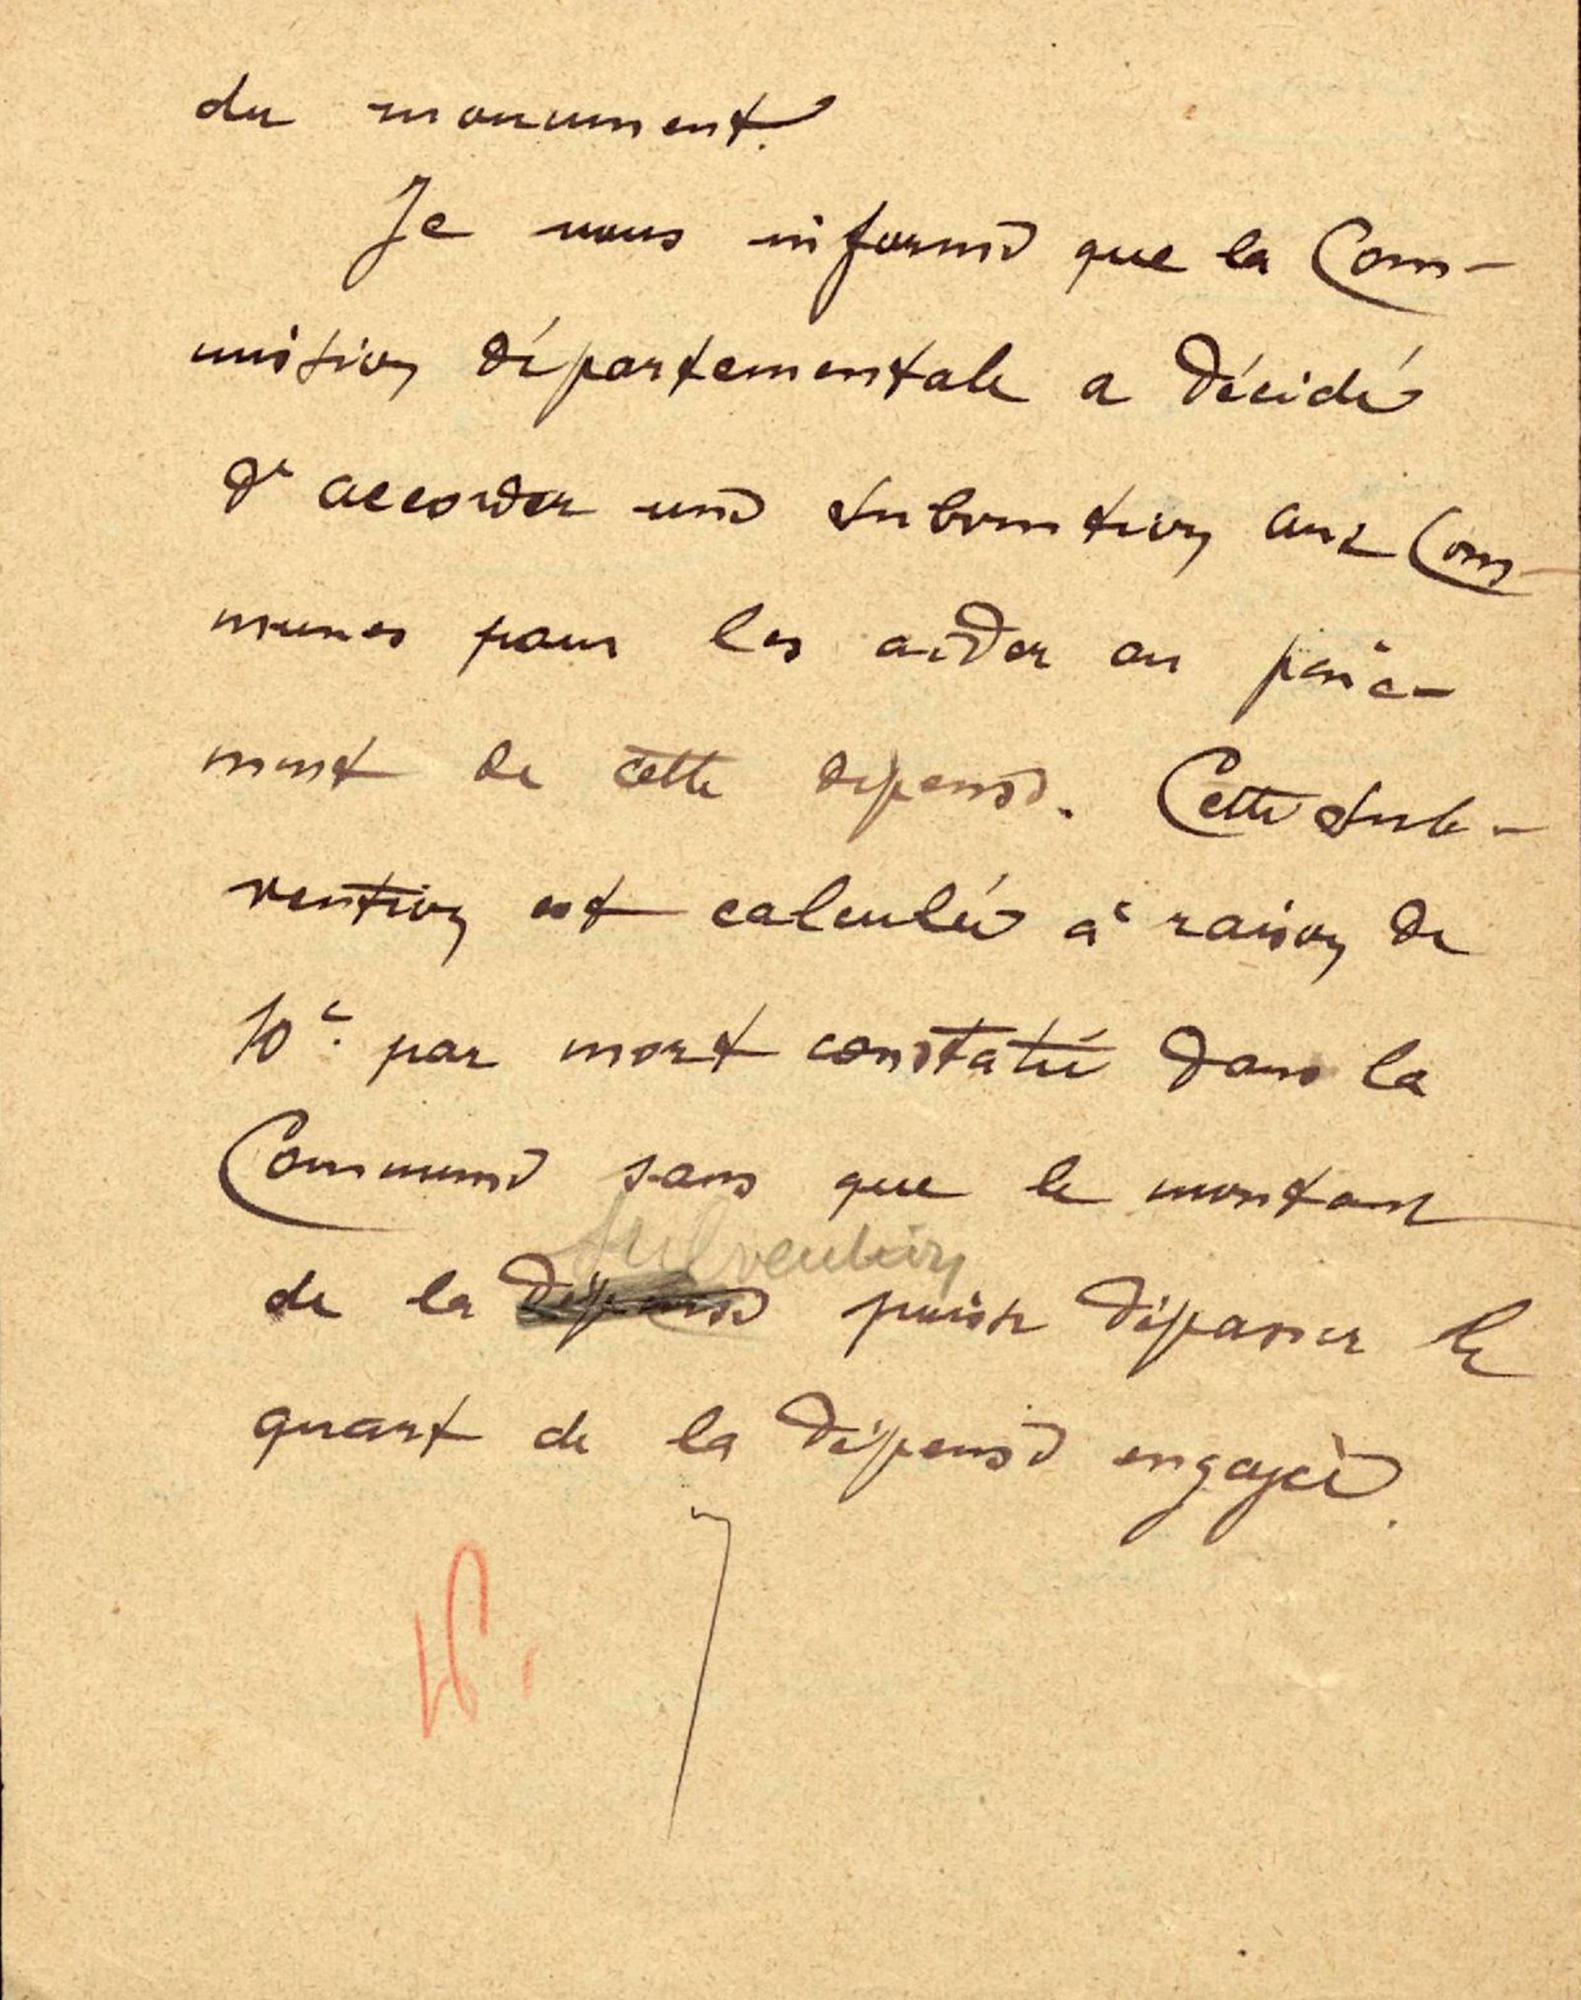 du monument.
Je vous informe que la Com-
mission départementale a décidé
d'accorder une subvention aux Com-
munes pour les aider au paie-
ment de cette dépense. Cette sub-
vention est calculée à raison de
10c. par mort constaté dans la
Commune sans que le montant
subvention
de la dépense puisse dépasser le
quart de la dépense engagée.